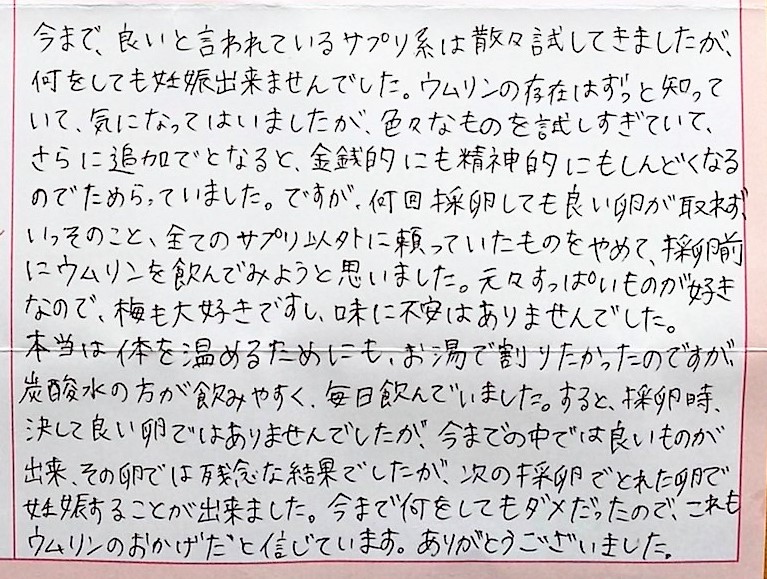 今まで、良いと言われているサプリ系は散々試してきましたが、
何をしても妊娠出来ませんでした。ウムリンの存在はずっと知って
いて、気になってはいましたが、色々なものを試しすぎていて、
さらに追加でとなると、金銭的にも精神的にもしんどくなる
のでためらっていました。ですが、何回採卵しても良い卵が取れず、
いっそのこと、全てのサプリ以外に頼っていたものをやめて、採卵前
にウムリンを飲んでみようと思いました。元々すっぱいものが好き
なので、梅も大好きですし、味に不安はありませんでした。
本当は体を温めるためにも、お湯で割りたかったのですが
炭酸水の方が飲みやすく、毎日飲んでいました。すると、採卵時、
決して良い卵ではありませんでしたが、今までの中では良いものが
出来、その卵では残念な結果でしたが、次の採卵でとれた卵で
妊娠することが出来ました。今まで何をしてもダメだったので、これも
ウムリンのおかげだと信じています。ありがとうございました。